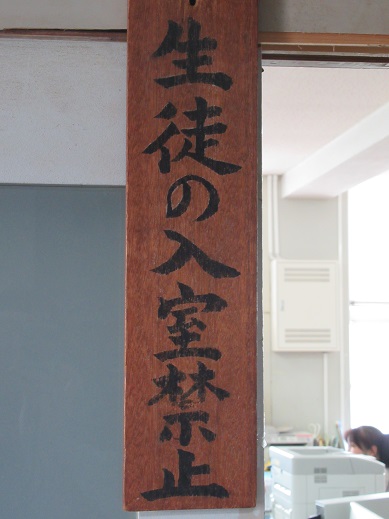 生徒の入室禁止